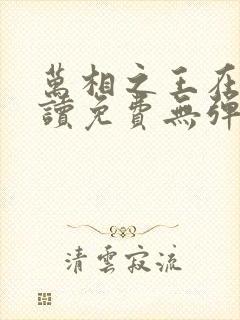 萬相之王在
讀免費無彈
清雲寂流